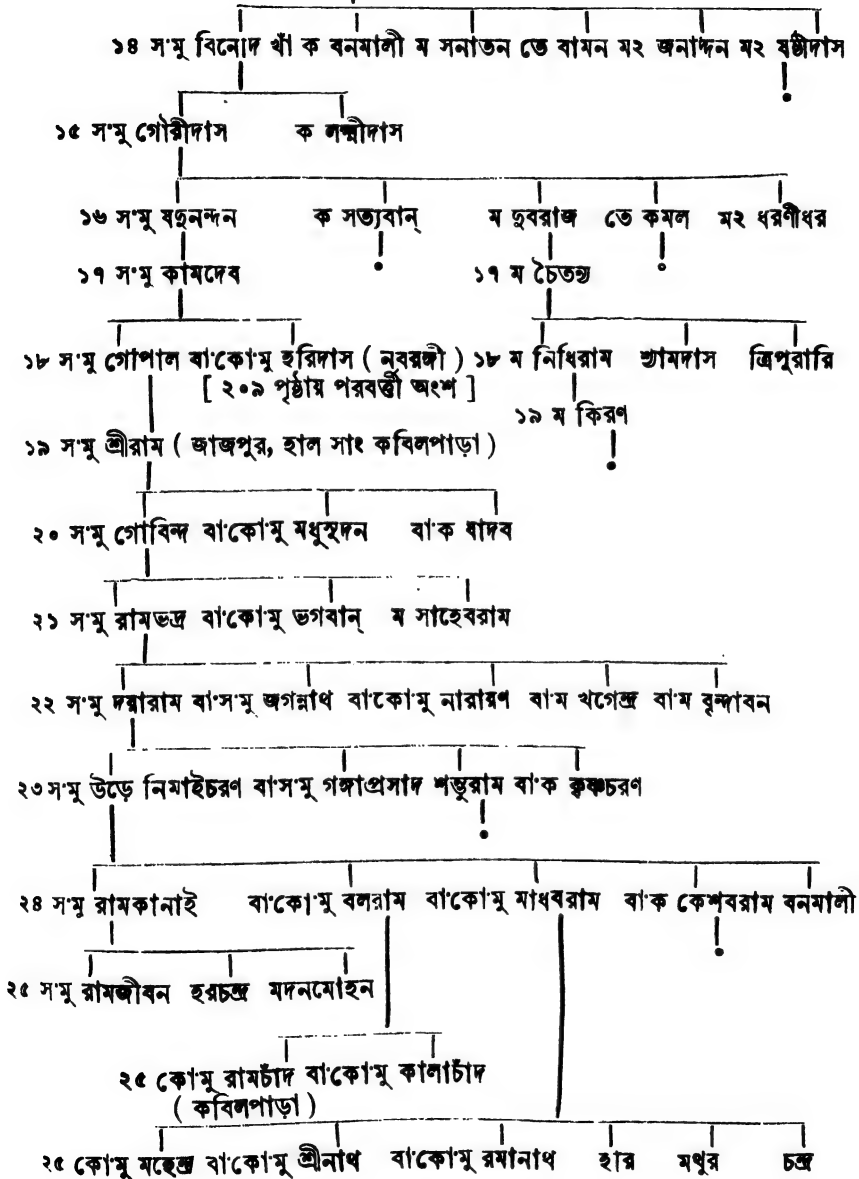 ১৪ স'মু বিনোদ খাঁ ক বনমালী ম সনাতন তে বামন ম২ জনার্দ্দন ম২ ষষ্ঠীদাস
১৫ স'মু গৌরীদাস ক লক্ষ্মীদাস
১৬ স'মু যদুনন্দন ক সত্যবান্ ম দুবরাজ তে কমল ম২ ধরণীধর
১৭ স'মু কামদেব ১৭ ম চৈতন্য
১৮ স'মু গোপাল বা'কো'মু হরিদাস ( নবরঙ্গী ) ১৮ ম নিধিরাম শ্যামদাস ত্রিপুরারি
[ ২০৯ পৃষ্ঠায় পরবর্ত্তী অংশ ]
১৯ ম কিরণ
১৯ স'মু শ্রীরাম ( জাজপুর, হাল সাং কবিলপাড়া )
২০ স'মু গোবিন্দ বা'কো'মু মধুসূদন বা'ক যাদব
২১ স'মু রামভদ্র বা'কো'মু ভগবান্ ম সাহেবরাম
২২ স'মু দয়ারাম বা'স'মু জগন্নাথ বা'কো'মু নারায়ণ বা'ম খগেন্দ্র বা'ম বৃন্দাবন
২৩ স'মু উড়ে নিমাইচরণ বা'স'মু গঙ্গাপ্রসাদ শম্ভুরাম বা'ক কৃষ্ণচরণ
২৪ স'মু রামকানাই বা'কো'মু বলরাম বা'কো'মু মাধবরাম বা'ক কেশবরাম বনমালী
২৫ স'মু রামজীবন হরচন্দ্র মদনমোহন
২৫ কো'মু রামচাঁদ বা'কো'মু কালাচাঁদ
( কবিলপাড়া )
২৫ কো'মু মহেন্দ্র বা'কো'মু শ্রীনাথ বা'কো'মু রমানাথ হার মথুর চন্দ্র